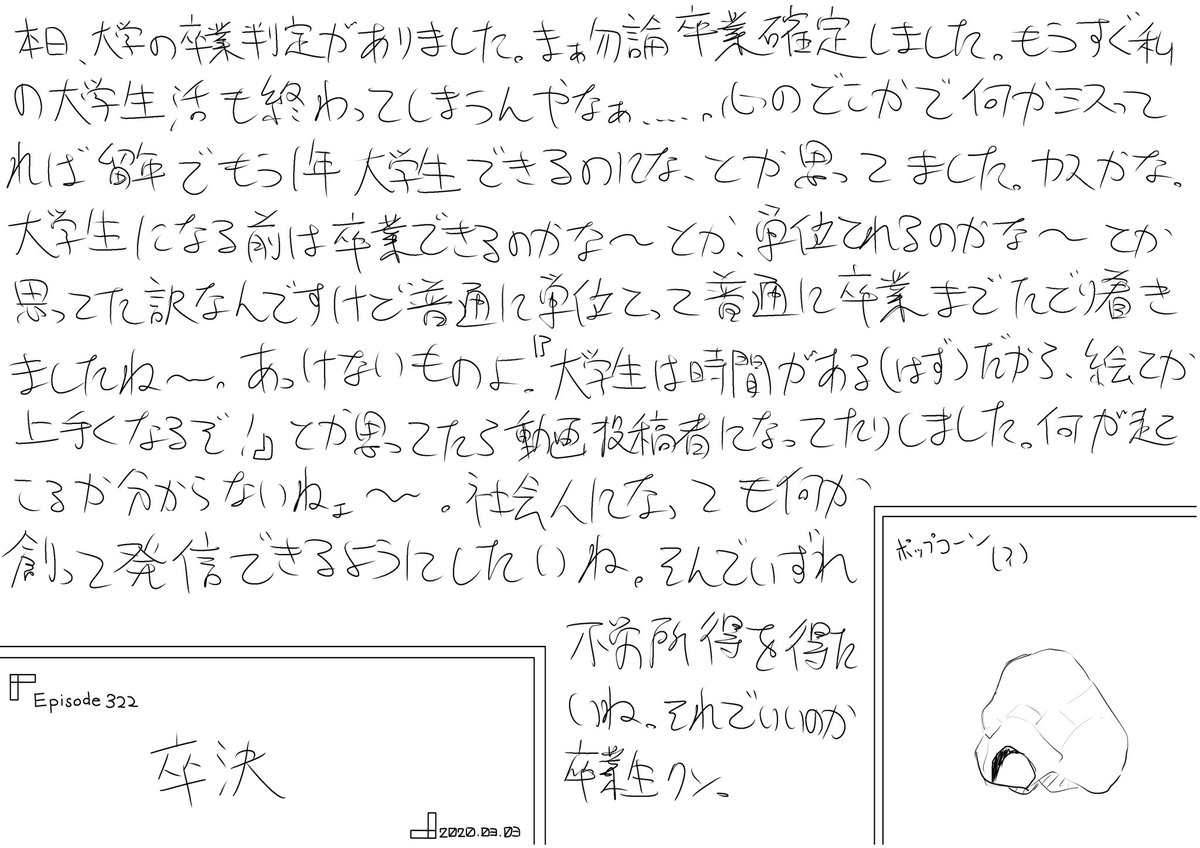 本日、大学の卒業判定がありました。まぁ勿論卒業確定しました。もうすぐ私
の大学生活も終わってしまうんやなぁ……。心のどこかで何かミスって
れば留年でもう1年大学生できるのにな、とか思ってました。カスかな。
大学生になる前は卒業できるのかな〜とか、単位とれるのかな〜とか
思ってた訳なんですけど普通に単位とって普通に卒業までたどり着き
ましたね〜。あっけないものよ。『大学生は時間がある(はず)だから、絵とか
上手くなるぞ!』とか思ってたら動画投稿者になってたりしました。何が起
こるか分からないねェ〜。社会人になっても何か
創って発信できるようにしたいね。そんでいずれ
不労所得を得た
いね。それでいいのか
卒業生クン。
Episode 322
卒決
2020.03.03
ポップコーン